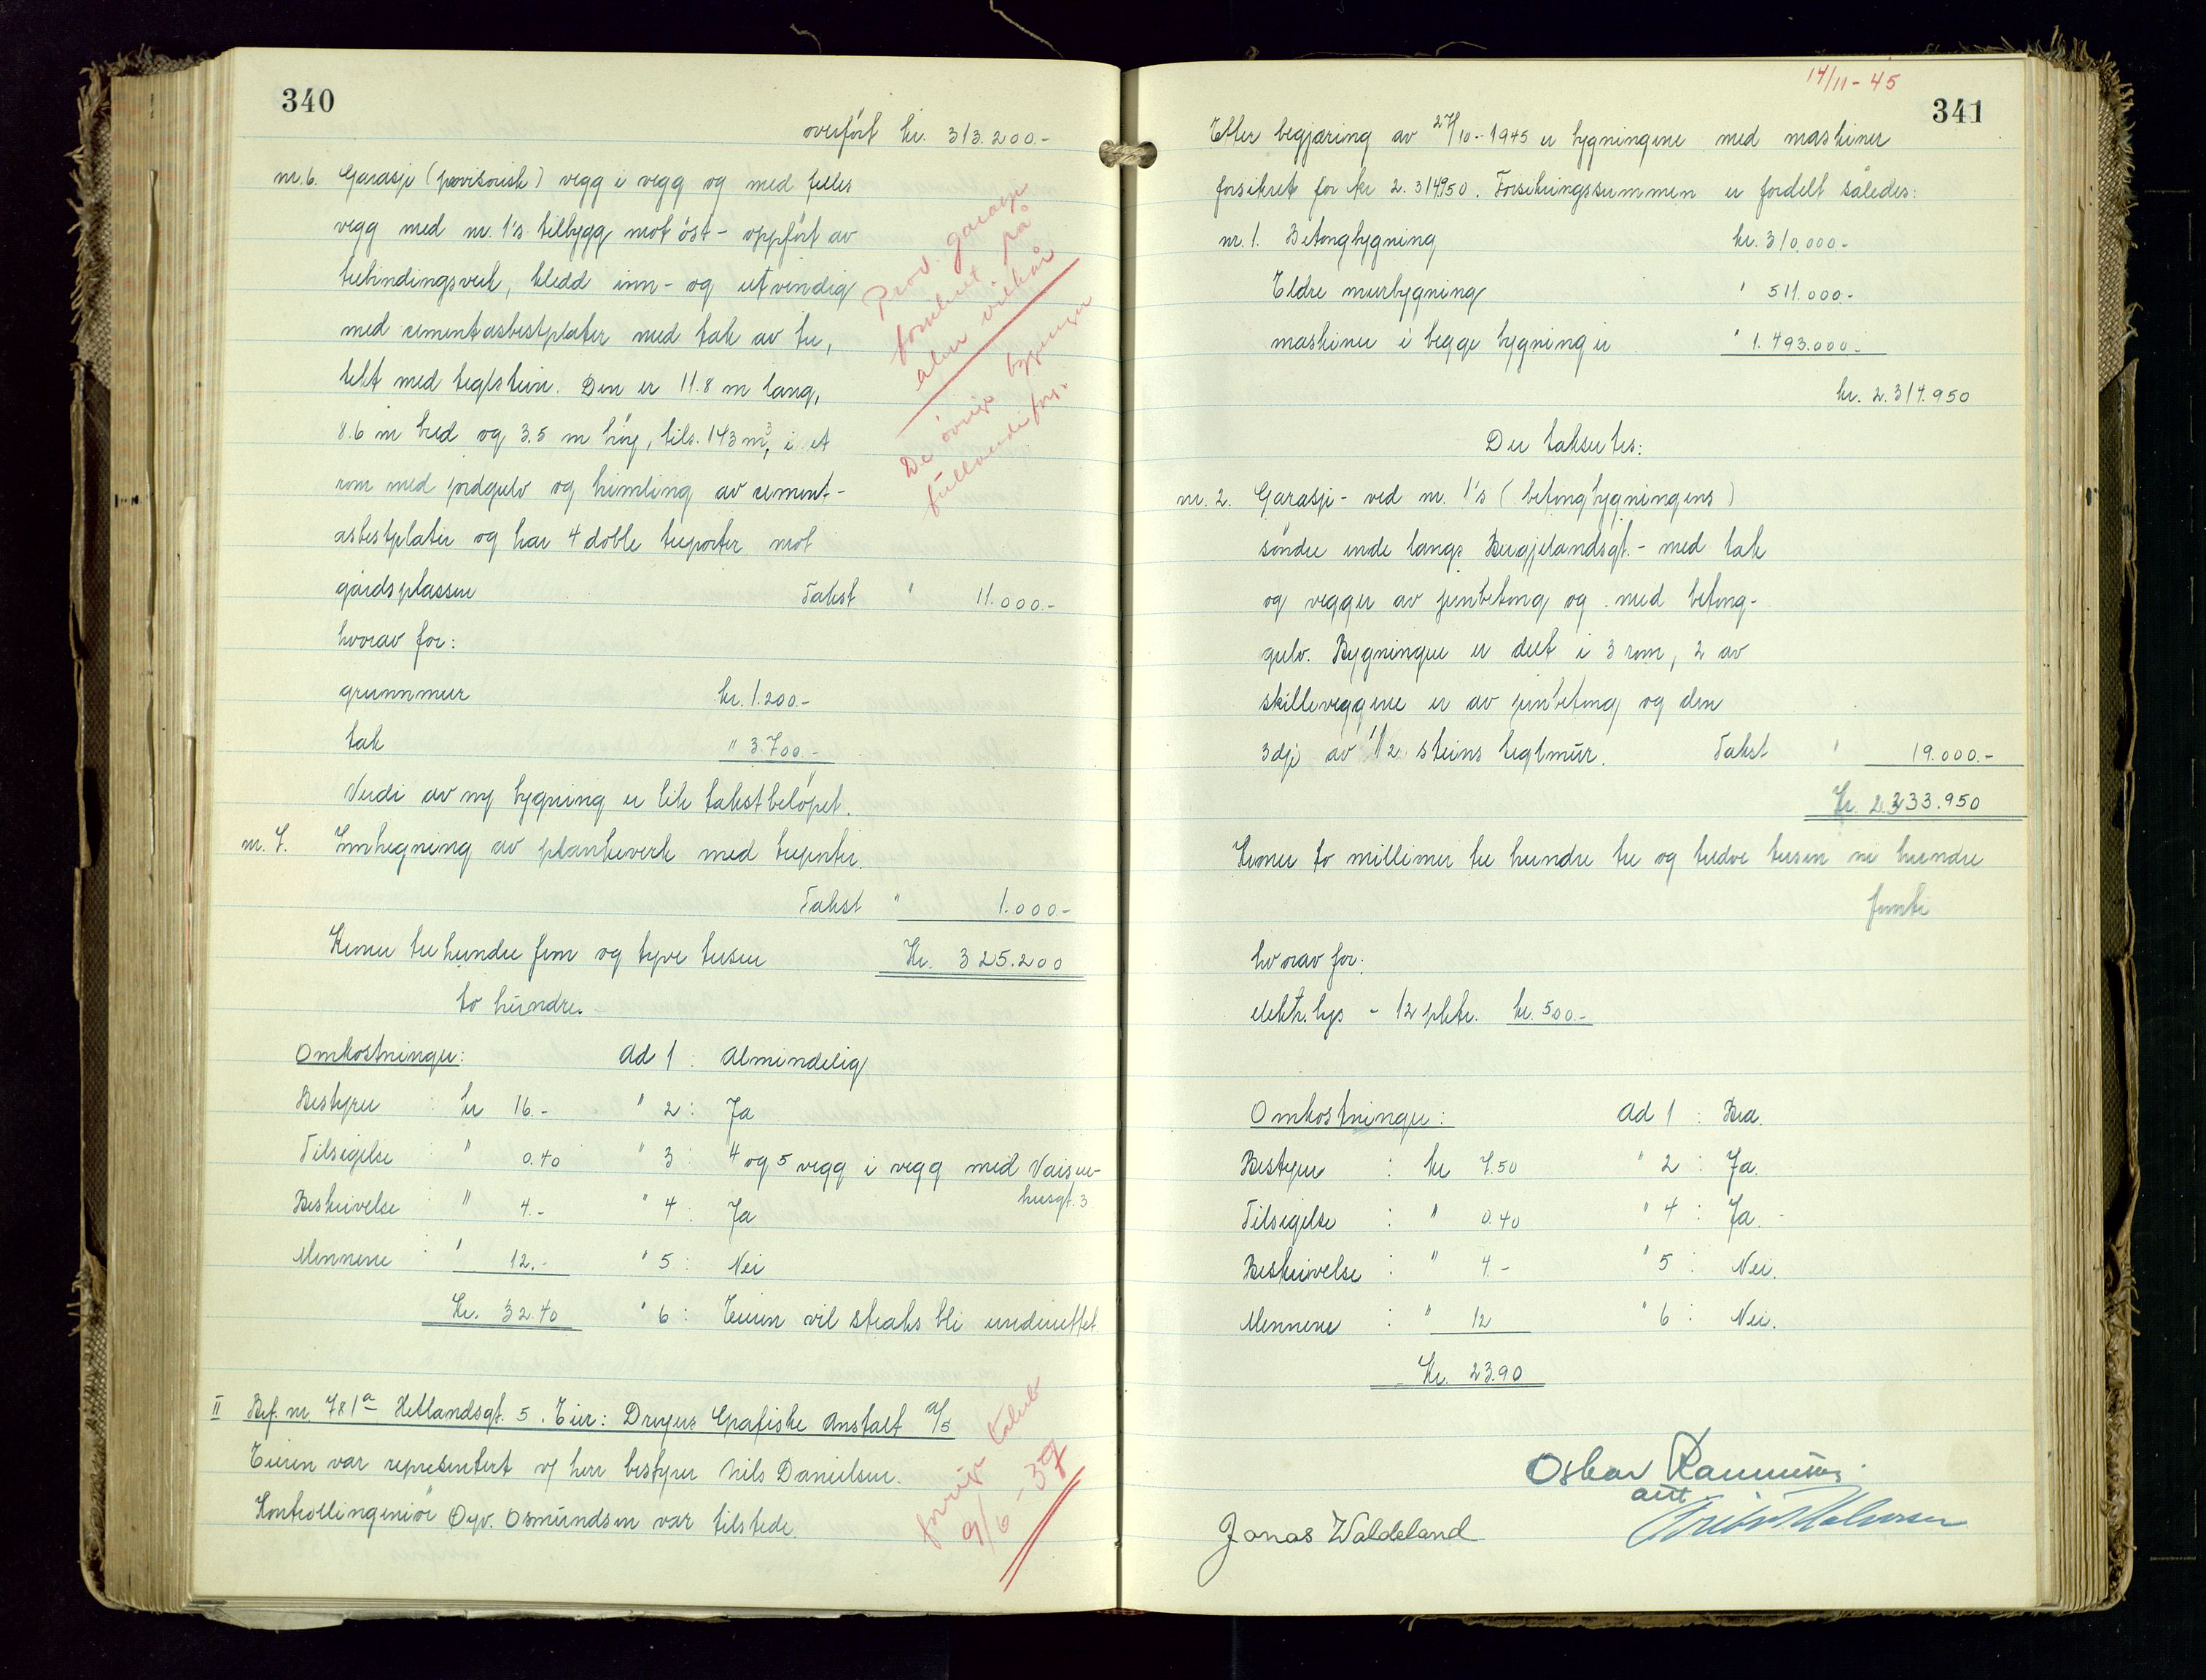 340
overført kr. 313.200.-
nr. 6. Garasje (provisorisk) vegg i vegg og med felles
vegg med nr. 1's tilbygg mot öst - oppført av
trebindingsverk, kledd inn- og utvendig
med cementasbestplater med tak av tre,
tekt med teglstein. Den er 11.8 m lang,
8.6 m bred og 3.5 m høy, tils. 143 m³, i et
rom med jordgulv og himling av cement-
asbestplater og har 4 doble treporter mot
gårdsplassen Takst " 11.000.-
hvorav for:
grunnmur kr. 1.200.-
tak " 3.700.-
Verdi av ny bygning er lik takstbeløpet.
nr. 7. Innhegning av plankeverk med treporter.
Takst " 1.000-
Kroner tre hundre fem og tyve tusen Kr. 325.200
to hundre.
Prov. garasje
forsikret på
alm vilkår
De övrige bygninger
fullverdifors.
Omkostninger: Ad 1 : Almindelig
Bestyrer : kr 16.- " 2 : Ja
Tilsigelse " 0.40 " 3 : 4 og 5 vegg i vegg med Vaisen-
husgt. 3
Beskrivelse : " 4.- " 4 : Ja
Mennene : " 12.- " 5 : Nei
Kr. 32.40 " 6 : Eieren vil straks bli underrettet.
II Brf. nr. 781ᵃ Hetlandsgt. 5. Eier: Dreyers Grafiske Anstalt A/S
Eieren var representert v/ herr bestyrer Nils Danielsen.
Kontrollingeniör Øyv. Osmundsen var tilstede.
forrige takst
9/6 - 39
14/11 - 45
341
Etter begjæring av 27/10 - 1945 er bygningene med maskiner
forsikret for kr 2.314950. Forsikringssummen er fordelt således:
nr. 1. Betongbygning kr. 310.000.-
Eldre murbygning " 511.000.-
maskiner i begge bygninger " 1.493.000.-
kr. 2.314.950
Der takseres:
nr. 2. Garasje - ved nr. 1's (betongbygningens)
søndre ende langs Bergjelandsgt. - med tak
og vegger av jernbetong og med betong-
gulv. Bygningen er delt i 3 rom, 2 av
skilleveggene er av jernbetong og den
3dje av 1/2 steins teglmur. Takst " 19.000.-
Kr. 2.333.950
Kroner to millioner tre hundre tre og tredve tusen ni hundre
femti
hvorav for:
elektr. lys - 12 pktr. kr. 500.-
Omkostninger: Ad 1 : Bra.
Bestyrer : kr 7.50 " 2 : Ja.
Tilsigelse : " 0.40 " 4 : Ja.
Beskrivelse : " 4.- " 5 : Nei.
Mennene : " 12 " 6 : Nei.
Kr. 23.90
Oskar Rasmussen
Jonas Waldeland